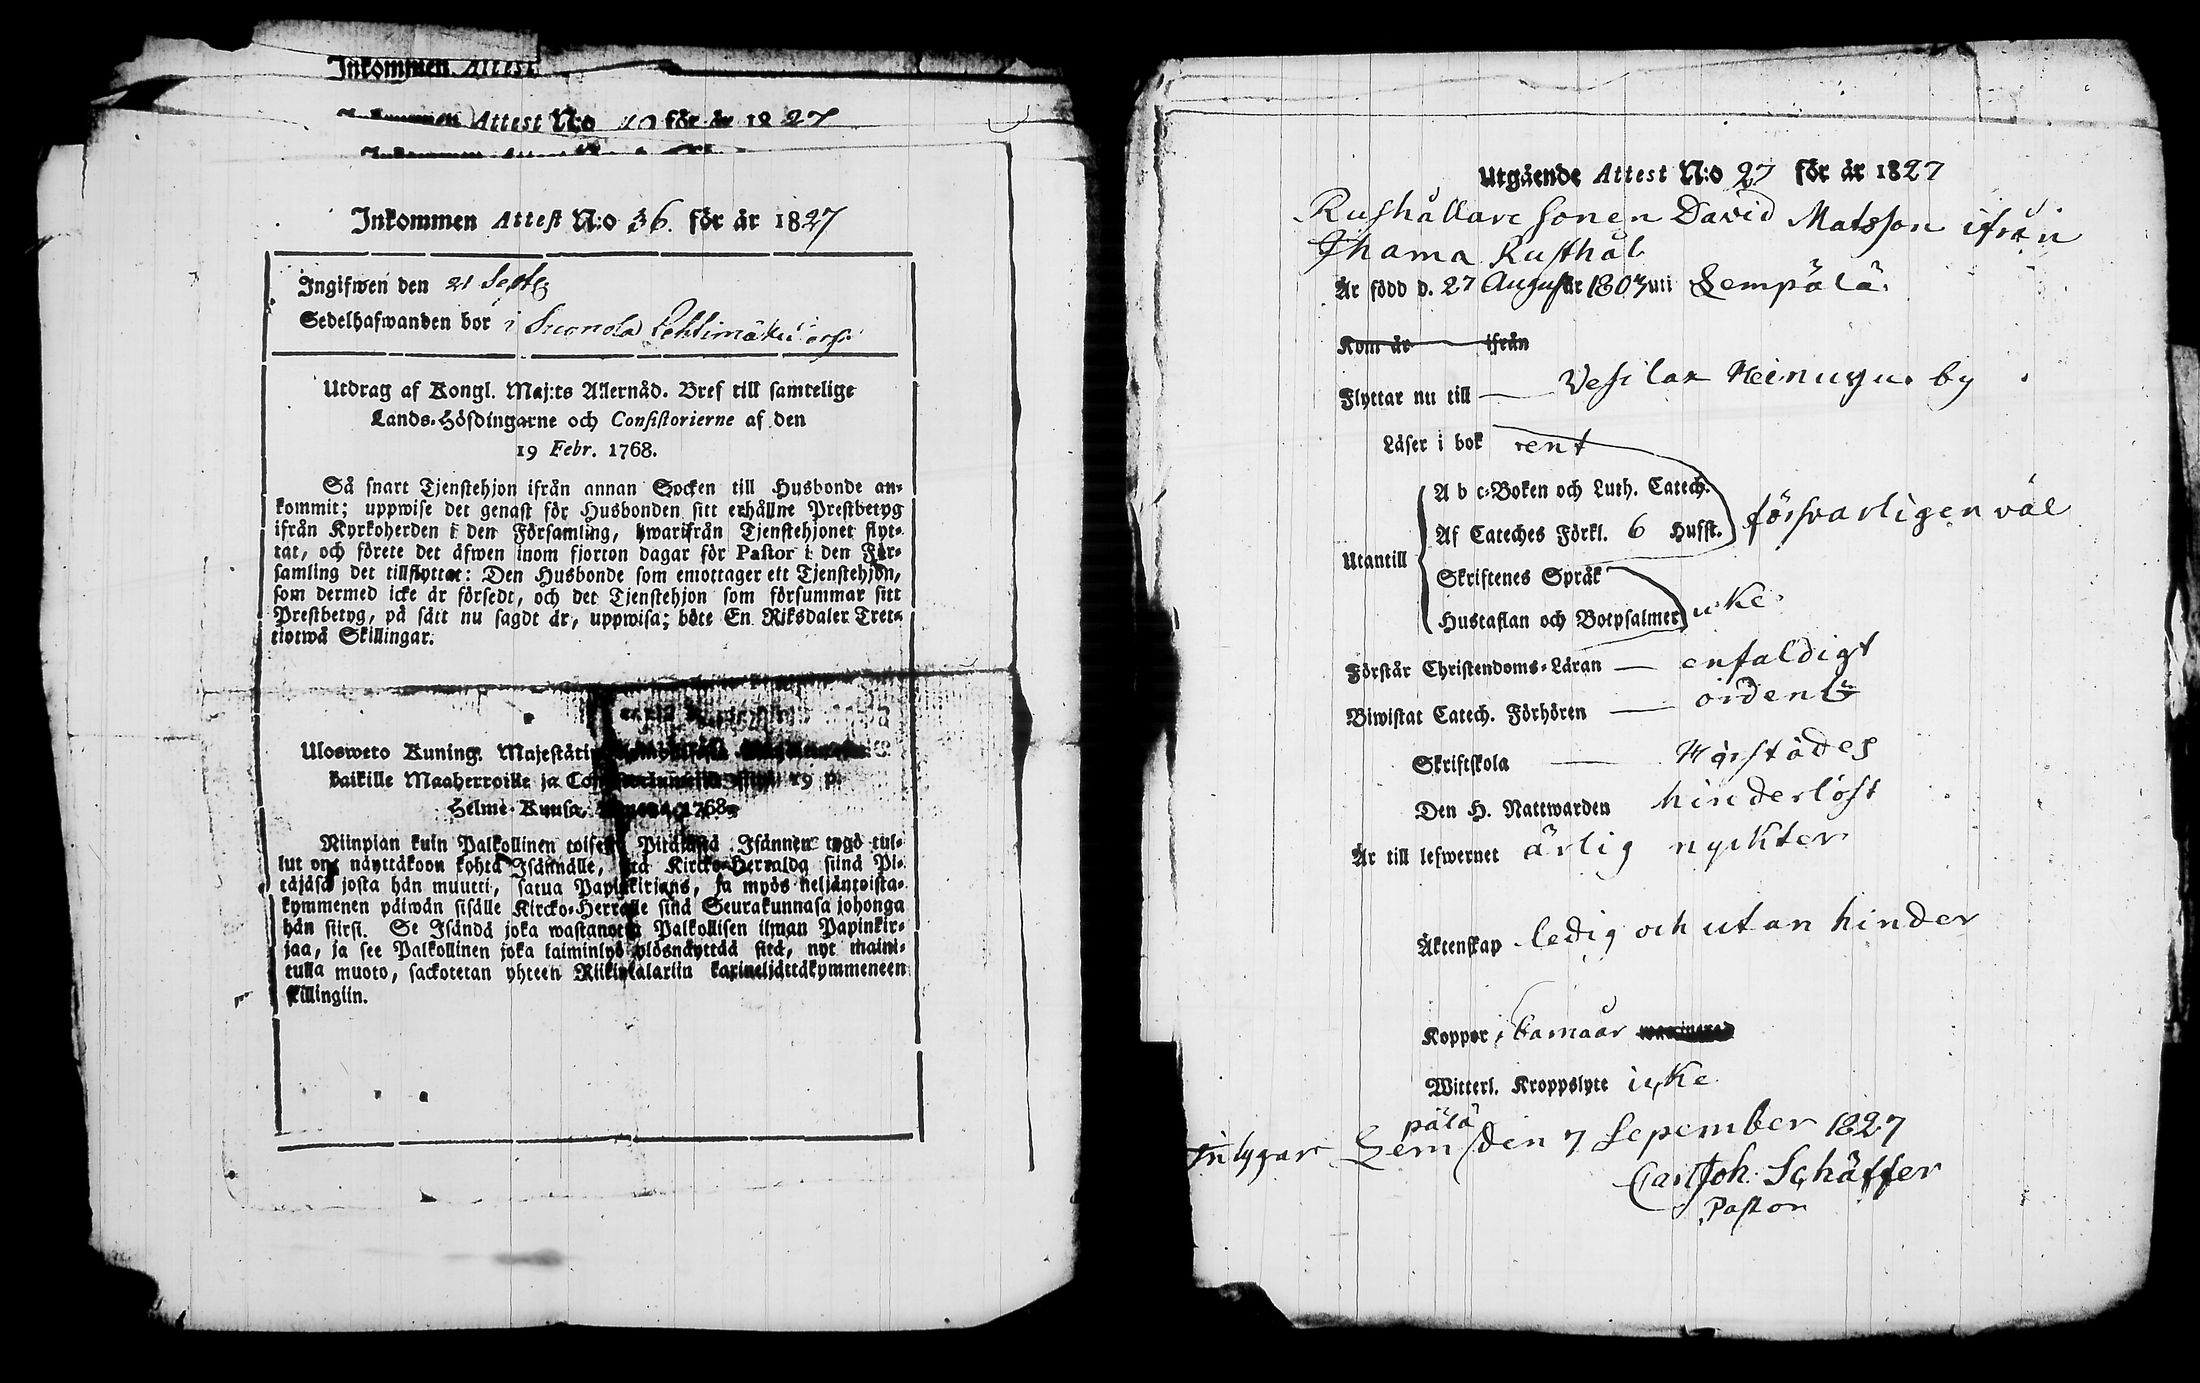 Inkommen Attest
Attest N:o 10 för år 1827
Inkommen Attest N:o 36. för år 1827
Ingifwen den 21 Septb
Sedelhafwanden bor i Suonola Lehtimäki
Utdrag af Kongl. Maj:ts Allernåd. Bref till samtelige
Lands-Höfdingarne och Consistorierne af den
19 Febr. 1768.
Så snart Tjenstehjon ifrån annan Socken till Husbonde an-
kommit; uppwise det genast för Husbonden sitt erhållne Prestbetyg
ifrån Kyrkoherden i den Församling, hwarifrån Tjenstehjonet flyt-
tat, och förete det äfwen inom fjorton dagar för Pastor i den För-
samling det tillflyttat: Den Husbonde som emottager ett Tjenstehjon,
som dermed icke är försedt, och det Tjenstehjon som försummar sitt
Prestbetyg, på sätt nu sagdt är, uppwisa; böte En Riksdaler Tret-
tiotwå Skillingar.
Ulosweto Kuning. Majestätin
kaikille Maaherroille ja 19 p.
Helme-Kuusa, 1768.
Niinpian kuin Palkollinen toisesta Pitäjästä Isännen tygö tul-
lut on, näyttäkoon kohta Isännälle, sitä Kircko-Herralda siinä Pi-
täjäsä josta hän muutti, saatua Papinkirjans, ja myös neljäntoista-
kymmenen päiwän sisälle Kircko-Herralle siinä Seurakunnasa johonga
hän siirsi. Se Isändä joka wastanotta Palkollisen ilman Papinkir-
jaa, ja see Palkollinen joka laiminlyö ylösnäyttää sitä, nyt maini-
tulla muoto, sackotetan yhteen Riikintalariin kaxineljättäkymmeneen
skillingiin.
Utgående Attest N:o 27 för år 1827
Rusthållare sonen David Matsson ifrån
Ihama Rusthål
Är född d. 27 August år 1803 uti Lempälä.
Kom år ifrån
Flyttar nu till Vesilax Heinusyu by
Läser i bok rent
A b c-Boken och Luth. Catech.
försvarligen väl
Af Cateches Förkl. 6 Hufst.
Utantill
Skriftenes Språk
Hustaflan och Botpsalmer icke
Förstår Christendoms-Läran enfaldigt
Biwistat Catech. Förhören ordentl
Skriftskola Härstädes
Den H. Nattwarden hinderlöst
Är till lefwernet ärlig nyckter
Äktenskap ledig och utan hinder
Koppor i barnaår
Witterl. Kroppslyte icke
Intygar Lempälä den 7 Sepember 1827
Carl Joh. Schäffer
Pastor